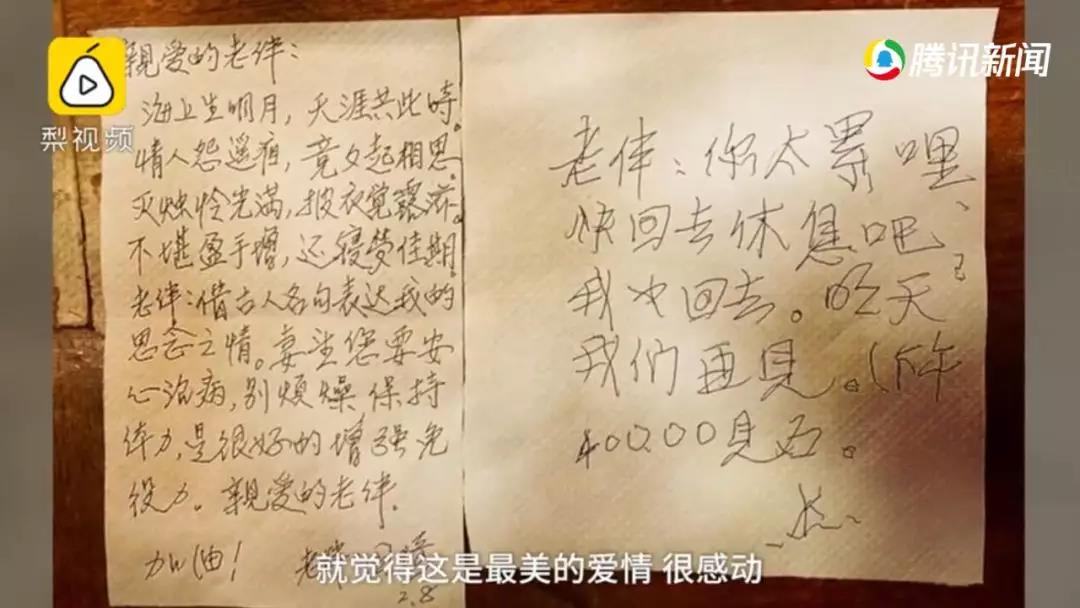 梨视频
腾讯新闻
親爱的老伴：
海上生明月，天涯共此時。
情人怨遥夜，竟夕起相思。
灭烛怜光满，披衣觉露滋。
不堪盈手增，还寝梦佳期。
老伴：借古人名句表达我的
思念之情。希望您要安
心治病，别烦燥保持
体力，是很好的增强免
疫力。親爱的老伴.
加油！
2.8
老伴：你太累哩、
快回去休息吧
我也回去。明天
我们再見。(下午
就觉得这是最美的爱情 很感动